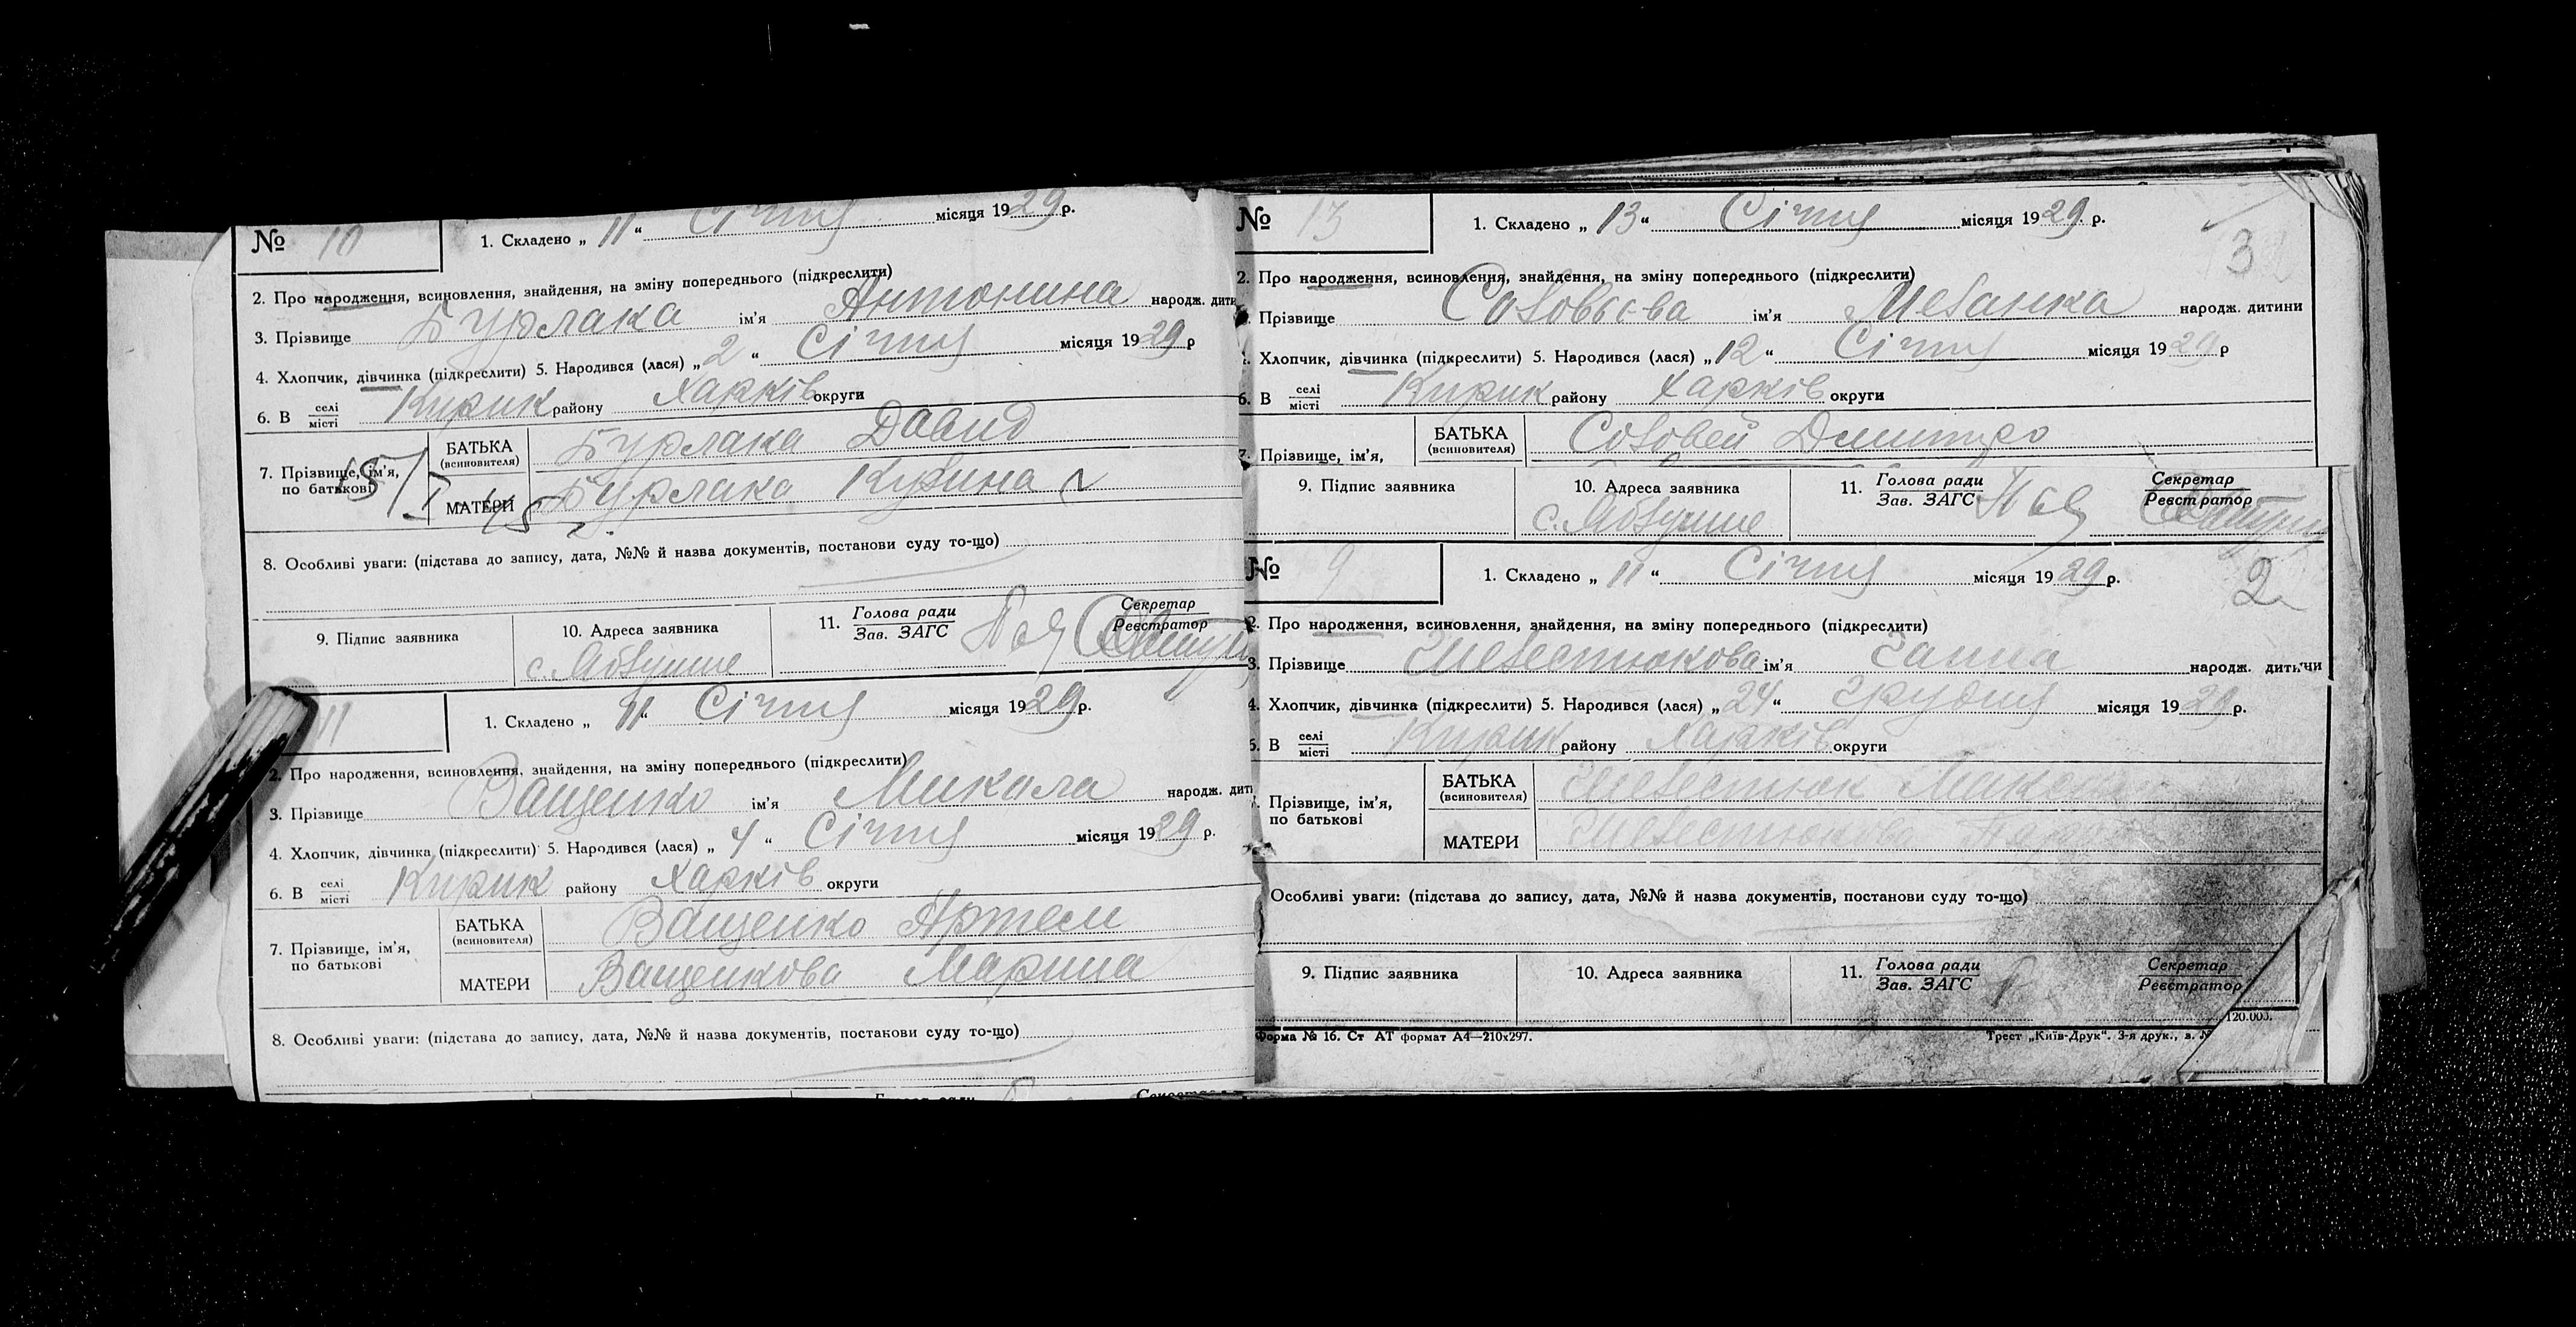 № 10 1. Складено „ 11 “ Січня місяця 1929 р.
2. Про народження, всиновлення, знайдення, на зміну попереднього (підкреслити)
3. Прізвище Бурлака ім'я Антонина народж. дити
4. Хлопчик, дівчинка (підкреслити) 5. Народився (лася) „ 2 “ Січня місяця 1929 р
6. В селі місті Кирик району Харків округи
7. Прізвище, ім'я, по батькові
БАТЬКА (всиновителя) Бурлака Давид
МАТЕРИ Бурлака
8. Особливі уваги: (підстава до запису, дата, №№ й назва документів, постанови суду то-що)
9. Підпис заявника 10. Адреса заявника 11. Голова ради Зав. ЗАГС Секретар Реєстратор
с.
11 1. Складено „ 11 “ Січня місяця 1929 р.
2. Про народження, всиновлення, знайдення, на зміну попереднього (підкреслити)
3. Прізвище Ващенко ім'я Микола народж. дит
4. Хлопчик, дівчинка (підкреслити) 5. Народився (лася) „ 4 “ Січня місяця 1929 р.
6. В селі місті Кирик району Харків округи
7. Прізвище, ім'я, по батькові
БАТЬКА (всиновителя) Ващенко Артем
МАТЕРИ Ващенкова Марина
8. Особливі уваги: (підстава до запису, дата, №№ й назва документів, постанови суду то-що)
№ 13 1. Складено „ 13 “ Січня місяця 1929 р.
3
2. Про народження, всиновлення, знайдення, на зміну попереднього (підкреслити)
Прізвище Соловьєва ім'я Меланка народж. дитини
Хлопчик, дівчинка (підкреслити) 5. Народився (лася) „ 12 “ Січня місяця 1929 р
6. В селі місті Кирик району Харків округи
7. Прізвище, ім'я,
БАТЬКА (всиновителя) Соловей Дмитро
9. Підпис заявника 10. Адреса заявника 11. Голова ради Зав. ЗАГС Секретар Реєстратор
с.
№ 9 1. Складено „ 11 “ Січня місяця 1929 р.
2
2. Про народження, всиновлення, знайдення, на зміну попереднього (підкреслити)
3. Прізвище Шелестюкова ім'я Ганна народж. дитини
4. Хлопчик, дівчинка (підкреслити) 5. Народився (лася) „ 24 “ Грудня місяця 1928 р.
6. В селі місті Кирик району Харків округи
Прізвище, ім'я, по батькові
БАТЬКА (всиновителя) Шелестюк Микола
МАТЕРИ
Особливі уваги: (підстава до запису, дата, №№ й назва документів, постанови суду то-що)
9. Підпис заявника 10. Адреса заявника 11. Голова ради Зав. ЗАГС Секретар Реєстратор
120.000.
Форма № 16. Ст АТ формат А4—210x297. Трест „Київ-Друк“. 3-я друк., в. №